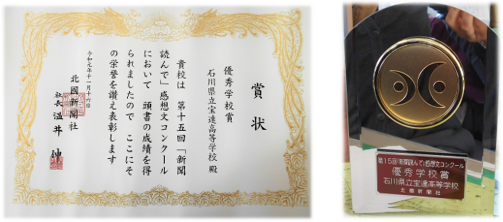 賞状
優秀学校賞
石川県立宝達高等学校 殿
貴校は 第十五回「新聞
読んで」感想文コンクール
において 頭書の成績を得
られましたので ここにそ
の栄誉を讃え表彰します
令和元年十一月十六日
北國新聞社
社長 温井 伸
第15回「新聞読んで」感想文コンクール
優秀学校賞
石川県立宝達高等学校
北國新聞社